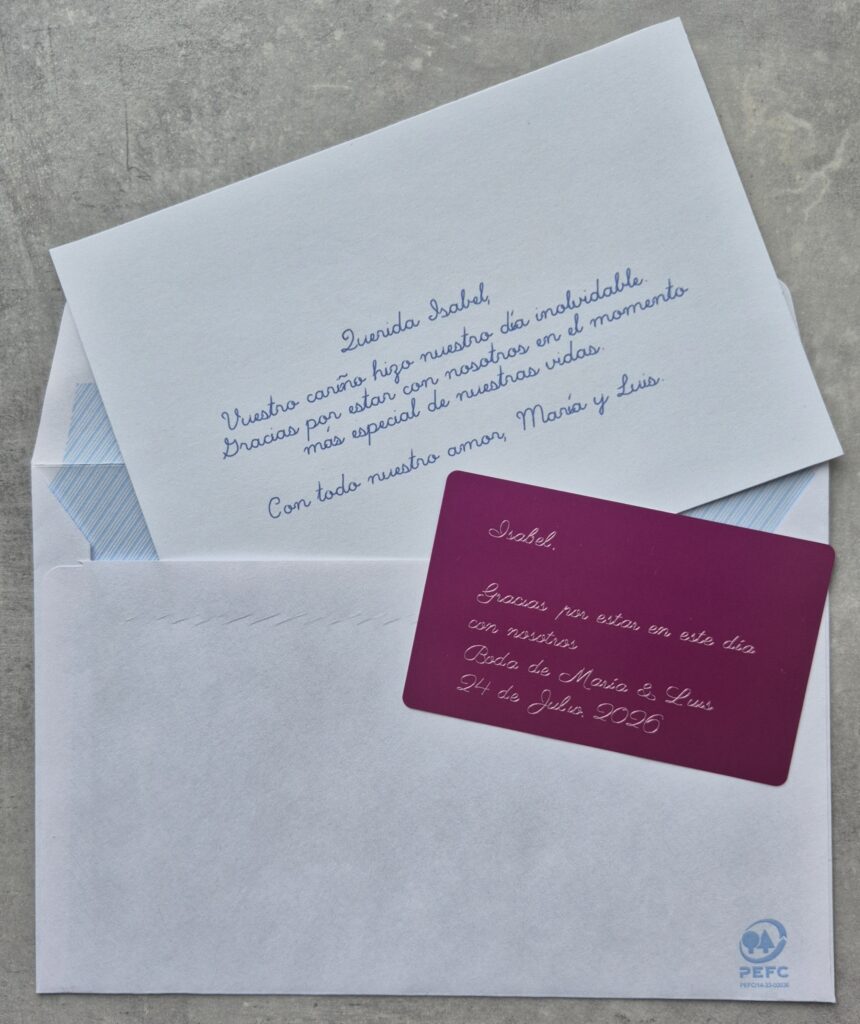 Querida Isabel,
Vuestro cariño hizo nuestro día inolvidable.
Gracias por estar con nosotros en el momento
más especial de nuestras vidas.
Con todo nuestro amor, María y Luis.
Isabel,
Gracias por estar en este día
con nosotros
Boda de María & Luis
24 de Julio, 2026
PEFC